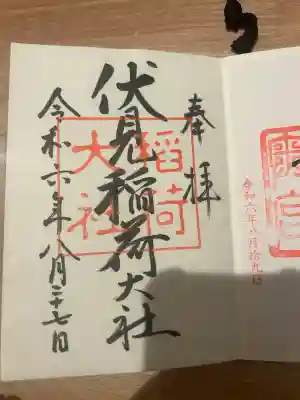 奉拝
伏見稲荷大社
稲荷
大社
令和六年八月二十七日
令和六年八月拾九日